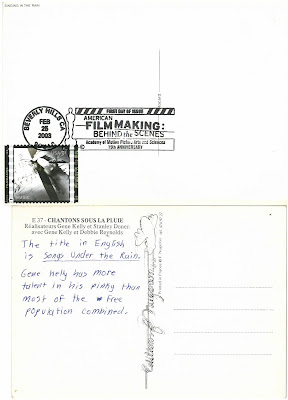 SINGING IN THE RAIN
BEVERLY HILLS CA
FEB
25
2003
FIRST DAY OF ISSUE
AMERICAN
FILMMAKING:
BEHIND the SCENES
Academy of Motion Picture Arts and Sciences
75th ANNIVERSARY
E 37 - CHANTONS SOUS LA PLUIE
Réalisateurs Gene Kelly et Stanley Donen
avec Gene Kelly et Debbie Reynolds
The title in English
is Songs Under the Rain.
Gene Kelly has more
talent in his pinky than
most of the Free
population combined.